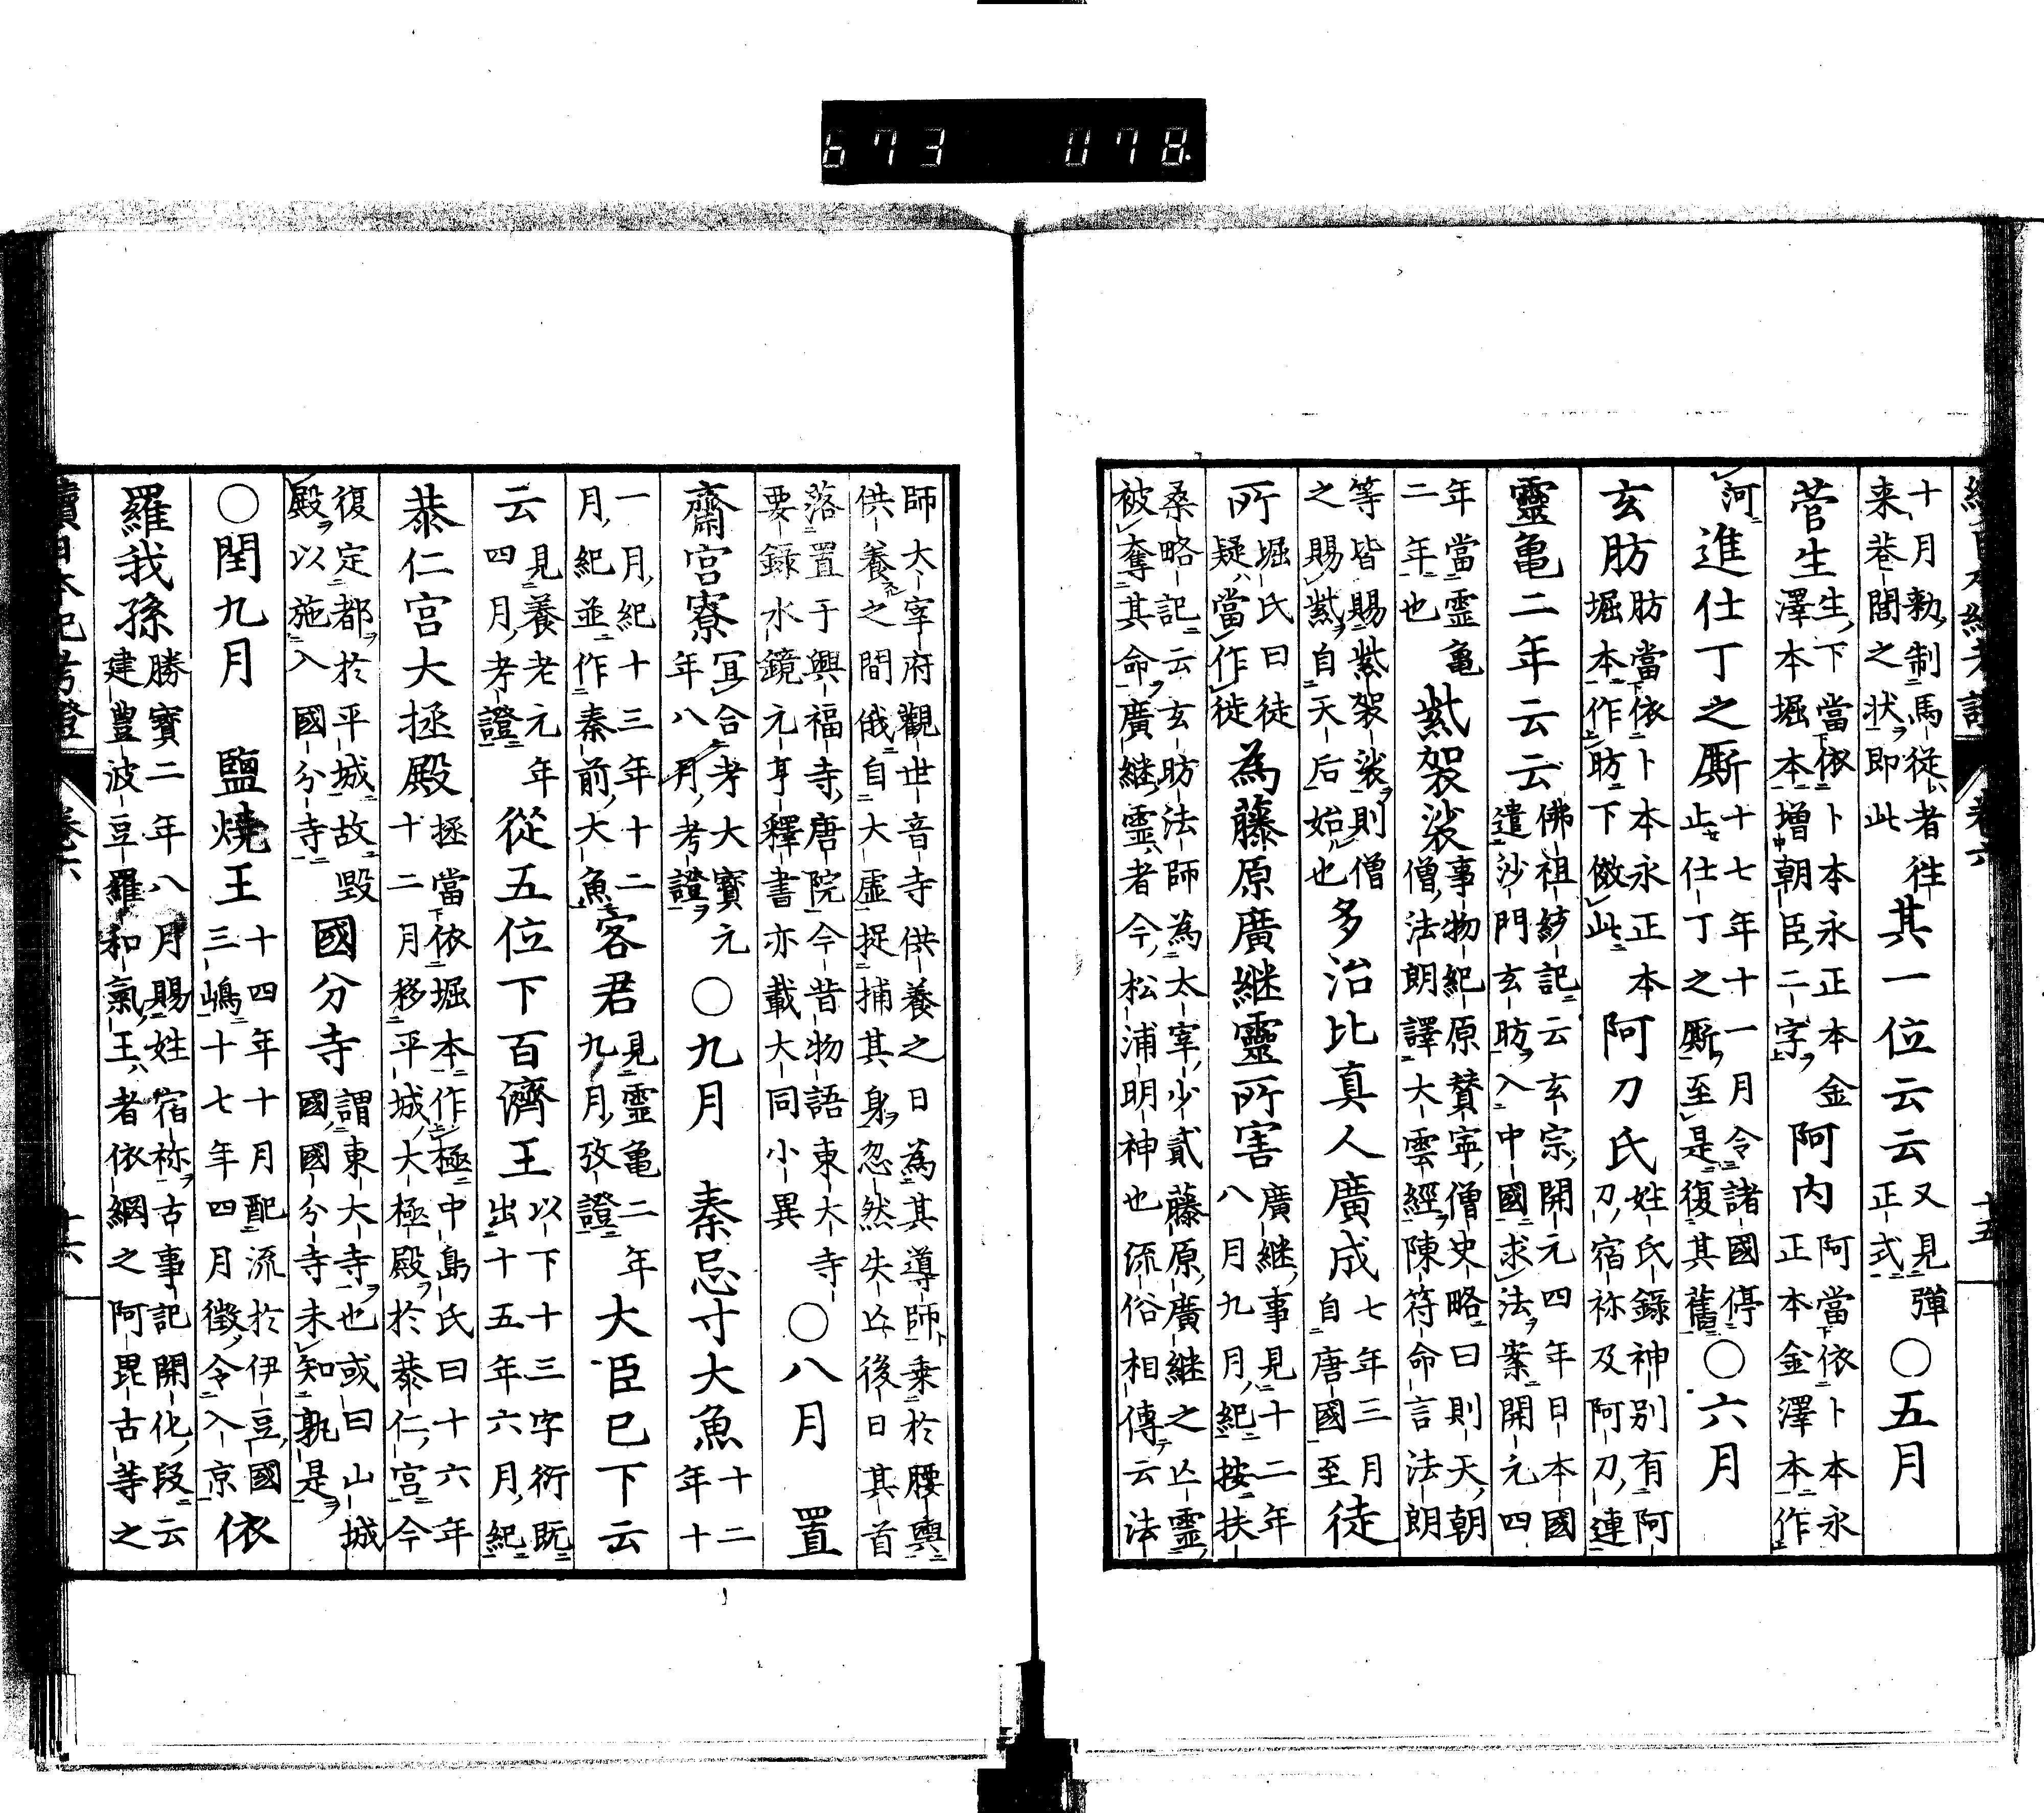 673 078
續日本紀考證 卷六 十五
十月勅制馬從者往
来巷閭之状即此
其一位云云
又見彈
正式
○五月
菅生
生下當依卜本永正本金
澤本堀本増朝臣二字
阿内
阿當依卜本永
正本金澤本作
河
進仕丁之厮
十七年十一月令諸國停
止仕丁之厮至是復其舊
○六月
玄肪
肪當依卜本永正本
堀本作昉下倣此
阿刀氏
姓氏錄神別有阿
刀宿祢及阿刀連
靈亀二年云云
佛祖統記云玄宗開元四年日本國
遣沙門玄昉入中國求法案開元四
年當霊亀
二年也
紫袈裟
事物紀原賛寧僧史略曰則天朝
僧法朗譯大雲經陳符命言法朗
等皆賜紫袈裟則僧
之賜紫自天后始也
多治比真人廣成
七年三月
自唐國至
徒
所
堀氏曰徒
疑當作徙
為藤原廣継靈所害
廣継事見十二年
八月九月紀按扶
桑略記云玄昉法師為太宰少貳藤原廣継之亡霊
被奪其命廣継霊者今松浦明神也流俗相傳云法
師大宰府觀世音寺供養之日為其導師乗於腰輿
供養之間俄自大虚捉捕其身忽然失亡後日其首
落置于興福寺唐院今昔物語東大寺
要録水鏡元亨釋書亦載大同小異
○八月 置
齋宮寮
冝合考大寳元
年八月考證
○九月 秦忌寸大魚
十二
年十
一月紀十三年十二
月紀並作秦前大魚
客君
見霊亀二年
九月攷證
大臣已下云
云
見養老元年
四月考證
從五位下百濟王
以下十三字衍既
出十五年六月紀
恭仁宮大拯殿
拯當依堀本作極中島氏曰十六年
十二月移平城大極殿於恭仁宮今
復定都於平城故毀
殿以施入國分寺
國分寺
謂東大寺也或曰山城
國國分寺未知孰是
○閏九月 鹽燒王
十四年十月配流於伊豆國
三嶋十七年四月徴令入京
依
羅我孫
勝寳二年八月賜姓宿祢古事記開化段云
建豊波豆羅和氣王者依網之阿毘古等之
續日本紀考證 卷六 十六